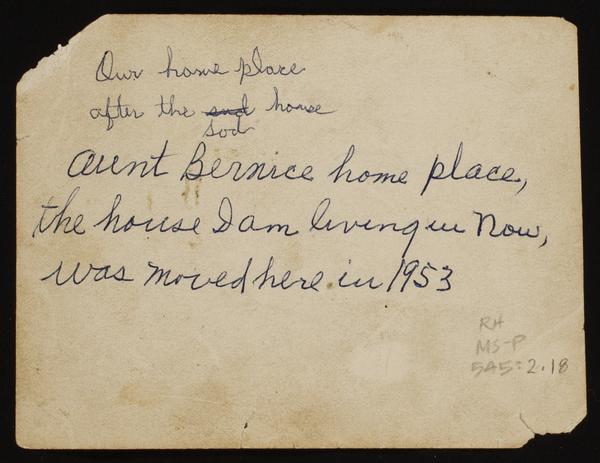 Our home place
after the sud house
sod
Aunt Bernice home place,
the house I am living in Now,
was moved here in 1953
RH
MS-P
545:2.18